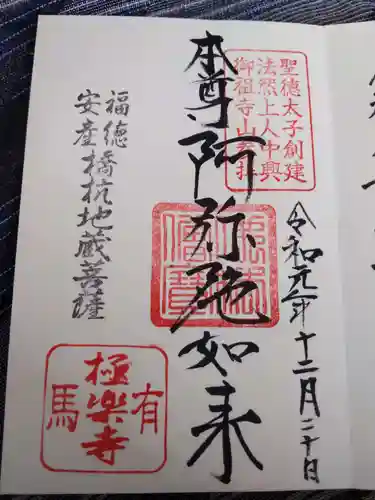 聖德太子創建
法然上人中興
令和元年十二月二十日
本尊阿弥陀如来
佛法僧寶
福徳
安産橋杭地蔵菩薩
有馬
極楽寺